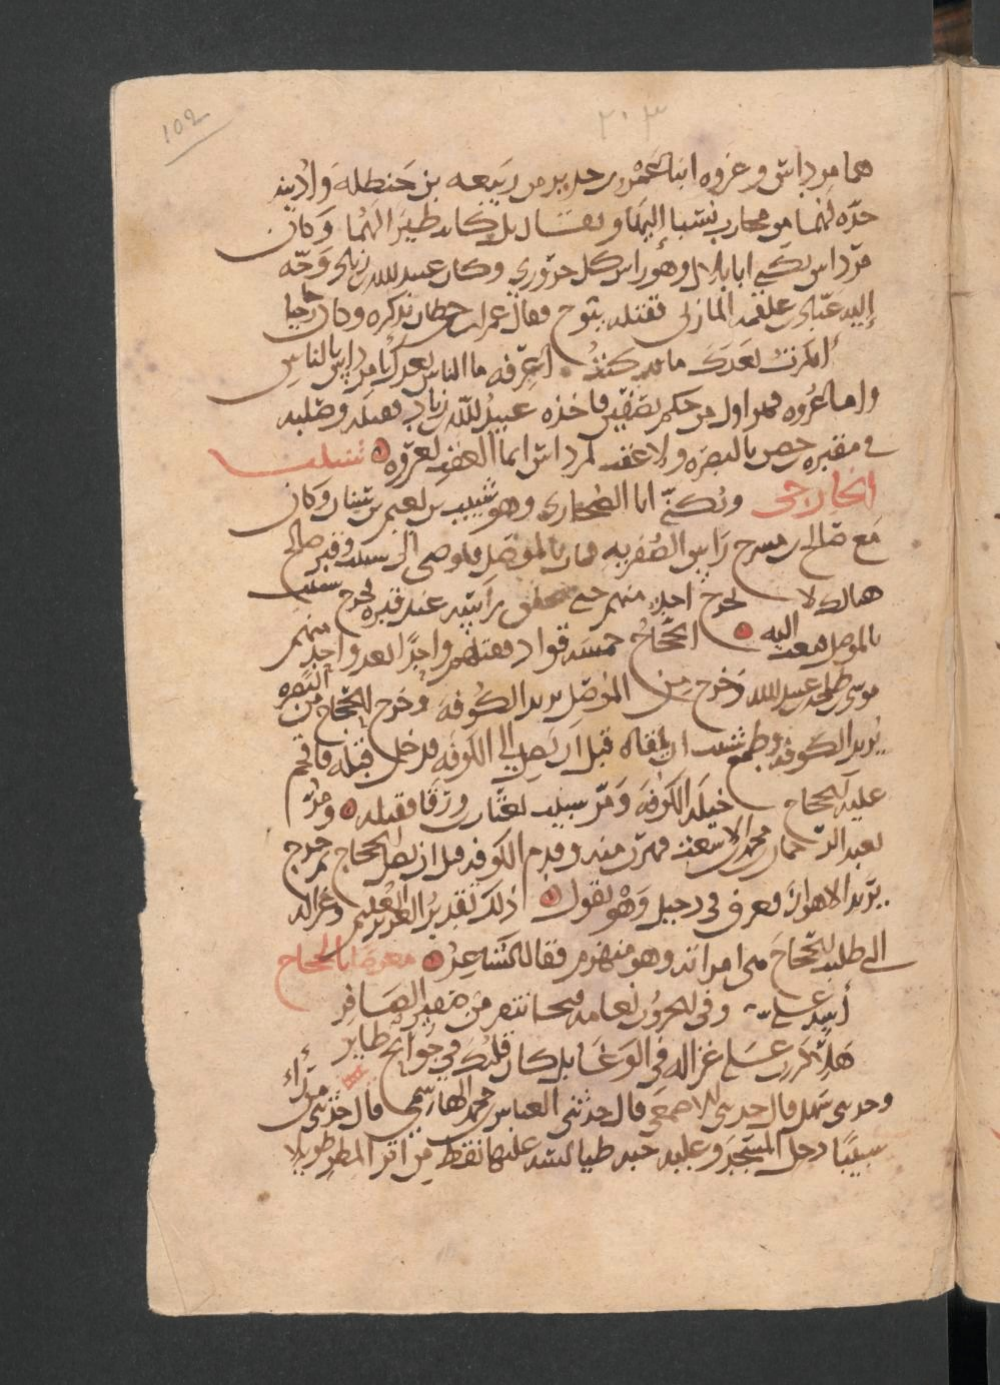 102
٢٠٣
هما مرداس وعروه ابنا عمرو بن حدير من ربيعه بن حنظله وادية
جده لهما من محارب نسبا إليها ويقال بل كانت ظيرا لهما وكان
مرداس يكنى ابا بلال وهو راس كل حروري وكان عبيد الله بن زياد وجه
إليه عباد بن علقمه المازني فقتله بتوج فقال عمران بن حطان يذكره وكان خارجيا
أنكرت بعدك ما قد كنت اعرفه ما الناس بعدك يا مرداس بالناس
واما عروه فهو اول من حكم بصفين فاخذه عبيد الله بن زياد فقتله وصلبه
في مقبره حصن بالبصره ولا عقب لمرداس انما العقب لعروه شبيب
الخارجي ويكنى ابا الصحاري وهو شبيب بن يزيد بن نعيم بن شيبان وكان
مع صالح بن مسرح راس الصفريه فمات بالموصل فاوصى الى شبيب وقبر صالح
هنالك لا يخرج احد منهم حتى يحلق راسه عند قبره فخرج شبيب
بالموصل فبعث اليه الحجاج خمسه قواد فقتلهم واحدا بعد واحد منهم
موسى بن طلحه بن عبيد الله وخرج من الموصل يريد الكوفه وخرج الحجاج من البصره
يريد الكوفه وطمع شبيب ان يلقاه قبل ان يصل الى الكوفه فدخل قبله فاقحم
عليه الحجاج خيله الكوفه ومر شبيب بعتاب بن ورقا فقتله ومر
بعبد الرحمان بن محمد بن الاشعث فهرب منه وقدم الكوفه قبل ان يصل الحجاج ثم خرج
يريد الاهواز فغرق في دجيل وهو يقول ذلك تقدير العزيز العليم وغزاله
الى طلبه الحجاج هي امراته وهو منهزم فقال معرضا بالحجاج
أسد علي وفي الحروب نعامه فتخاء تنفر من صفير الصافر
هلا كررت على غزاله في الوغا بل كان قلبك في جوانح طاير
وحدثني سهل قال حدثني الاصمعي قال حدثني العباس بن محمد الهاشمي قال حدثني من راء
شبيبا دخل المسجد وعليه جبه طيالسه عليها نقط من اثر المطر طويلا